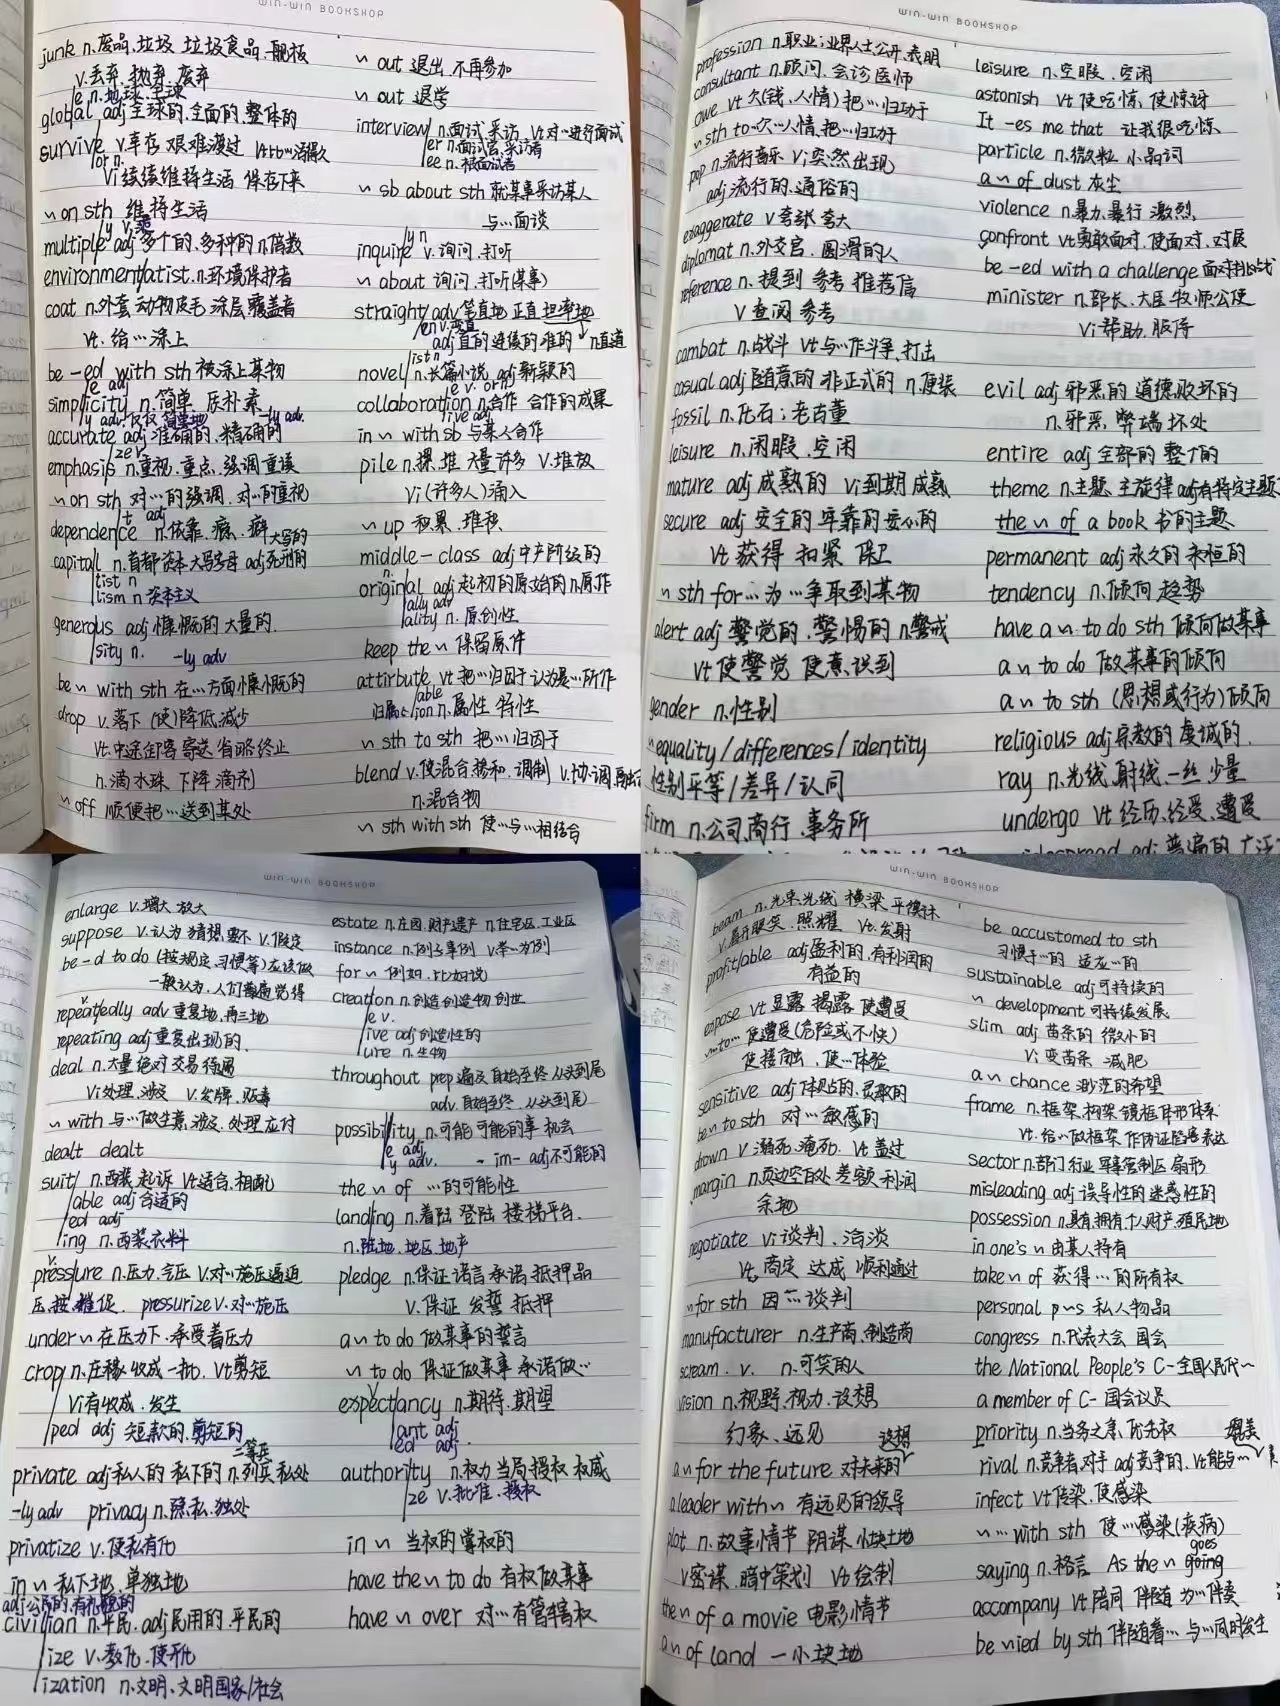 WIN-WIN BOOKSHOP
junk n.废品、垃圾 垃圾食品 舢板
v.丢弃、抛弃 废弃
le n.地球、全球
global adj 全球的、全面的、整体的
survive v.幸存 艰难渡过
or n.
Vi 继续维持生活 保存下来
~ on sth 维持生活
ly v.乘
multiple adj 多个的、多种的 n.倍数
environmentatist n.环境保护者
coat n.外套 动物皮毛 涂层 覆盖者
vt. 给…涂上
be -ed with sth 被涂上某物
le adj
simplicity n.简单 质朴素
ly adv.仅仅 简单地 -ly adv.
accurate adj 准确的、精确的
ize v.
emphasis n.重视、重点、强调 重读
~ on sth 对…的强调、对…的重视
t adj
dependence n.依靠、瘾、癖
capital n.首都 资本 大写字母 adj 死刑的 大写的
tist n
lism n 资本主义
generous adj 慷慨的 大量的.
sity n. -ly adv
be ~ with sth 在…方面慷慨的
drop v.落下 (使)降低、减少
vt.中途卸客 寄送 省略 终止
n.滴 水珠 下降 滴剂
~ off 顺便把…送到某处
~ out 退出 不再参加
~ out 退学
interview n.面试 采访 vt 对…进行面试
er n.面试官、采访者
ee n.被面试者
~ sb about sth 就某事采访某人
与…面谈
ly n
inquire v.询问、打听
~ about 询问、打听(某事)
straight adv 笔直地 正直 坦率地
en v.变直
adj 直的 连续的 准的 n直道
list n
novel n.长篇小说 adj 新颖的
e v. or n
collaboration n.合作 合作的成果
ive adj
in ~ with sb 与某人合作
pile n.摞 堆 大量许多 v.堆放
Vi (许多人)涌入
~ up 积累、堆积
middle-class adj 中产阶级的
n.
original adj 起初的 原始的 n.原作
ally adv
ality n. 原创性
keep the ~ 保留原件
attirbute vt 把…归因于 认为是…所作
able
ion n.属性 特性
~ sth to sth 把…归因于
blend v.使混合 掺和、调制 v.协调
n.混合物
~ sth with sth 使…与…相结合
WIN-WIN BOOKSHOP
profession n.职业;业界人士 公开、表明
consultant n.顾问、会诊医师
owe vt 欠(钱、人情) 把…归功于
~ sth to…欠…人情、把…归功于
pop n.流行音乐 Vi 突然出现
adj 流行的、通俗的
exaggerate v 夸张 夸大
diplomat n.外交官、圆滑的人
reference n.提到 参考 推荐信
v 查阅 参考
combat n.战斗 vt 与…作斗争、打击
casual adj 随意的 非正式的 n.便装
fossil n.化石；老古董
leisure n.闲暇、空闲
mature adj 成熟的 Vi 到期 成熟
secure adj 安全的 牢靠的 安心的
vt 获得 扣紧 保卫
~ sth for…为…争取到某物
alert adj 警觉的、警惕的 n.警戒
vt 使警觉 使意识到
gender n.性别
~ equality/differences/identity
性别平等/差异/认同
firm n.公司、商行、事务所
leisure n.空暇、空闲
astonish vt 使吃惊、使惊讶
It -es me that 让我很吃惊
particle n.微粒 小品词
a ~ of dust 灰尘
violence n.暴力、暴行 激烈
confront vt 勇敢面对、使面对、对质
be -ed with a challenge 面对挑战
minister n.部长、大臣 牧师 公使
Vi 帮助、服侍
evil adj 邪恶的 道德败坏的
n.邪恶 弊端 坏处
entire adj 全部的 整个的
theme n.主题 主旋律 adj 有特定主题
the ~ of a book 书的主题
permanent adj 永久的 永恒的
tendency n.倾向 趋势
have a ~ to do sth 倾向做某事
a ~ to do 做某事的倾向
a ~ to sth (思想或行为)倾向
religious adj 宗教的 虔诚的.
ray n.光线 射线、一丝 少量
undergo vt 经历、经受、遭受
widespread adj 普遍的 广泛
WIN-WIN BOOKSHOP
enlarge v.增大 放大
suppose v.认为 猜想 要不 v.假定
be -d to do (按规定、习惯等)应该做
一般认为、人们普遍觉得
v
repeatedly adv 重复地、再三地
repeating adj 重复出现的.
deal n.大量 绝对 交易 待遇
Vi 处理、涉及 v.发牌、贩毒
~ with 与…做生意 涉及、处理 应付
dealt dealt
suit n.西装 起诉 vt 适合、相配
able adj 合适的
ed adj
ing n.西装衣料
v.
pressure n.压力、气压 v.对…施压 逼迫
压、按、催促. pressurize v.对…施压
under ~ 在压力下、承受着压力
crop n.庄稼 收成 一批、vt 剪短
Vi 有收成、发生
ped adj 短款的、剪短的
二等兵
private adj 私人的 私下的 n.列兵 私处
-ly adv privacy n.隐私、独处
privatize v.使私有化
in ~ 私下地、单独地
adj 公民的、有礼貌的
civilian n.平民、adj 民用的、平民的
ize v.教化、使开化
ization n.文明、文明国家/社会
estate n.庄园、财产 遗产 n.住宅区、工业区
instance n.例子 事例 v.举…为例
for ~ 例如、比如说
creation n.创造 创造物 创世
e v.
ive adj 创造性的
ure n.生物
throughout prep 遍及 自始至终 从头到尾
adv.自始至终、从头到尾
possibility n.可能 可能的事 机会
e adj
y adv. - im- adj 不可能的
the ~ of …的可能性
landing n.着陆 登陆 楼梯平台.
n.陆地、地区、地产
pledge n.保证 诺言 承诺 抵押品
v.保证 发誓 抵押
a ~ to do 做某事的誓言
~ to do 保证做某事 承诺做…
v
expectancy n.期待、期望
ant adj
ed adj.
authority n.权力 当局 授权 权威
ze v.批准、授权
in ~ 当权的 掌权的
have the ~ to do 有权做某事
have ~ over 对…有管辖权
WIN-WIN BOOKSHOP
beam n.光束 光线 横梁 平衡木
v.喜开眼笑、照耀 vt.发射
profitable adj 盈利的、有利润的
有益的
expose vt 显露 揭露 使遭受
~…to… 使遭受(危险或不快)
使接触、使…体验
sensitive adj 体贴的、灵敏的
be ~ to sth 对…敏感的
drown v 溺死、淹死. vt 盖过
margin n.页边空白处 差额 利润
余地
negotiate Vi 谈判、洽谈
vt.商定 达成 顺利通过
~ for sth 因…谈判
manufacturer n.生产商、制造商
scream. v. n.可笑的人
vision n.视野、视力、设想
幻象、远见
设想
a ~ for the future 对未来的
a leader with ~ 有远见的领导
plot n.故事情节 阴谋 小块土地
v 密谋、暗中策划 vt 绘制
the ~ of a movie 电影情节
a ~ of land 一小块地
be accustomed to sth
习惯于…的 适应…的
sustainable adj 可持续的
~ development 可持续发展
slim adj 苗条的 微小的
Vi 变苗条 减肥
a ~ chance 渺茫的希望
frame n.框架、构架 镜框 体形 体系
vt.给…做框架、作伪证陷害 表达
sector n.部门 行业 军事管制区 扇形
misleading adj 误导性的 迷惑性的
possession n.具有、拥有 个人财产、殖民地
in one's ~ 由某人持有
take ~ of 获得…的所有权
personal ~s 私人物品
congress n.代表大会 国会
the National People's C- 全国人民代~
a member of C- 国会议员
priority n.当务之急、优先权
媲美
rival n.竞争者 对手 adj 竞争的、vt 能与…
infect vt 传染、使感染
~…with sth 使…感染(疾病)
goes
saying n.格言 As the ~ going
accompany vt 陪同 伴随 为…伴奏
be ~ied by sth 伴随着… 与…同时发生